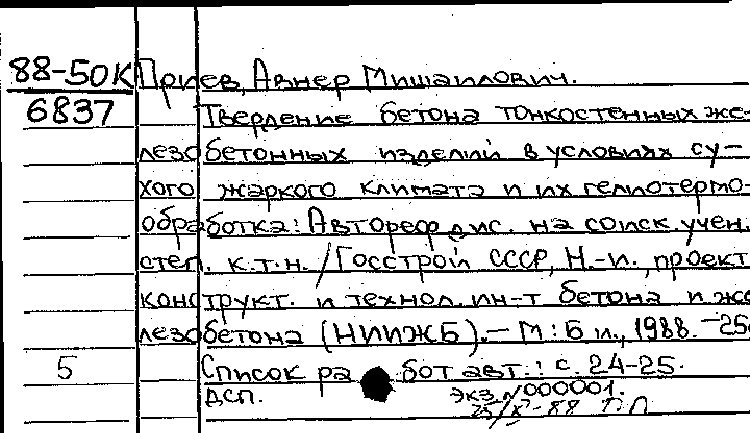 88-50К Приев, Авнер Мишаилович.
6837 Твердение бетона тонкостенных же-
лезобетонных изделий в условиях су-
хого жаркого климата и их гелиотермо-
обработка: Автореф дис. на соиск. учен.
степ. к.т.н. / Госстрой СССР, Н.-и., проект
конструкт. и технол. ин-т бетона и же
лезобетона (НИИЖБ). – М: Б и., 1988. – 25
5 Список ра бот авт.: с. 24-25.
ДСП. Экз N000001.